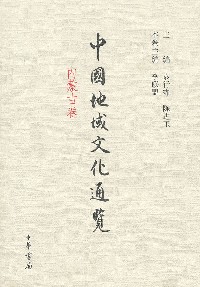 中國地域文化通覽
内蒙古卷
中華書局